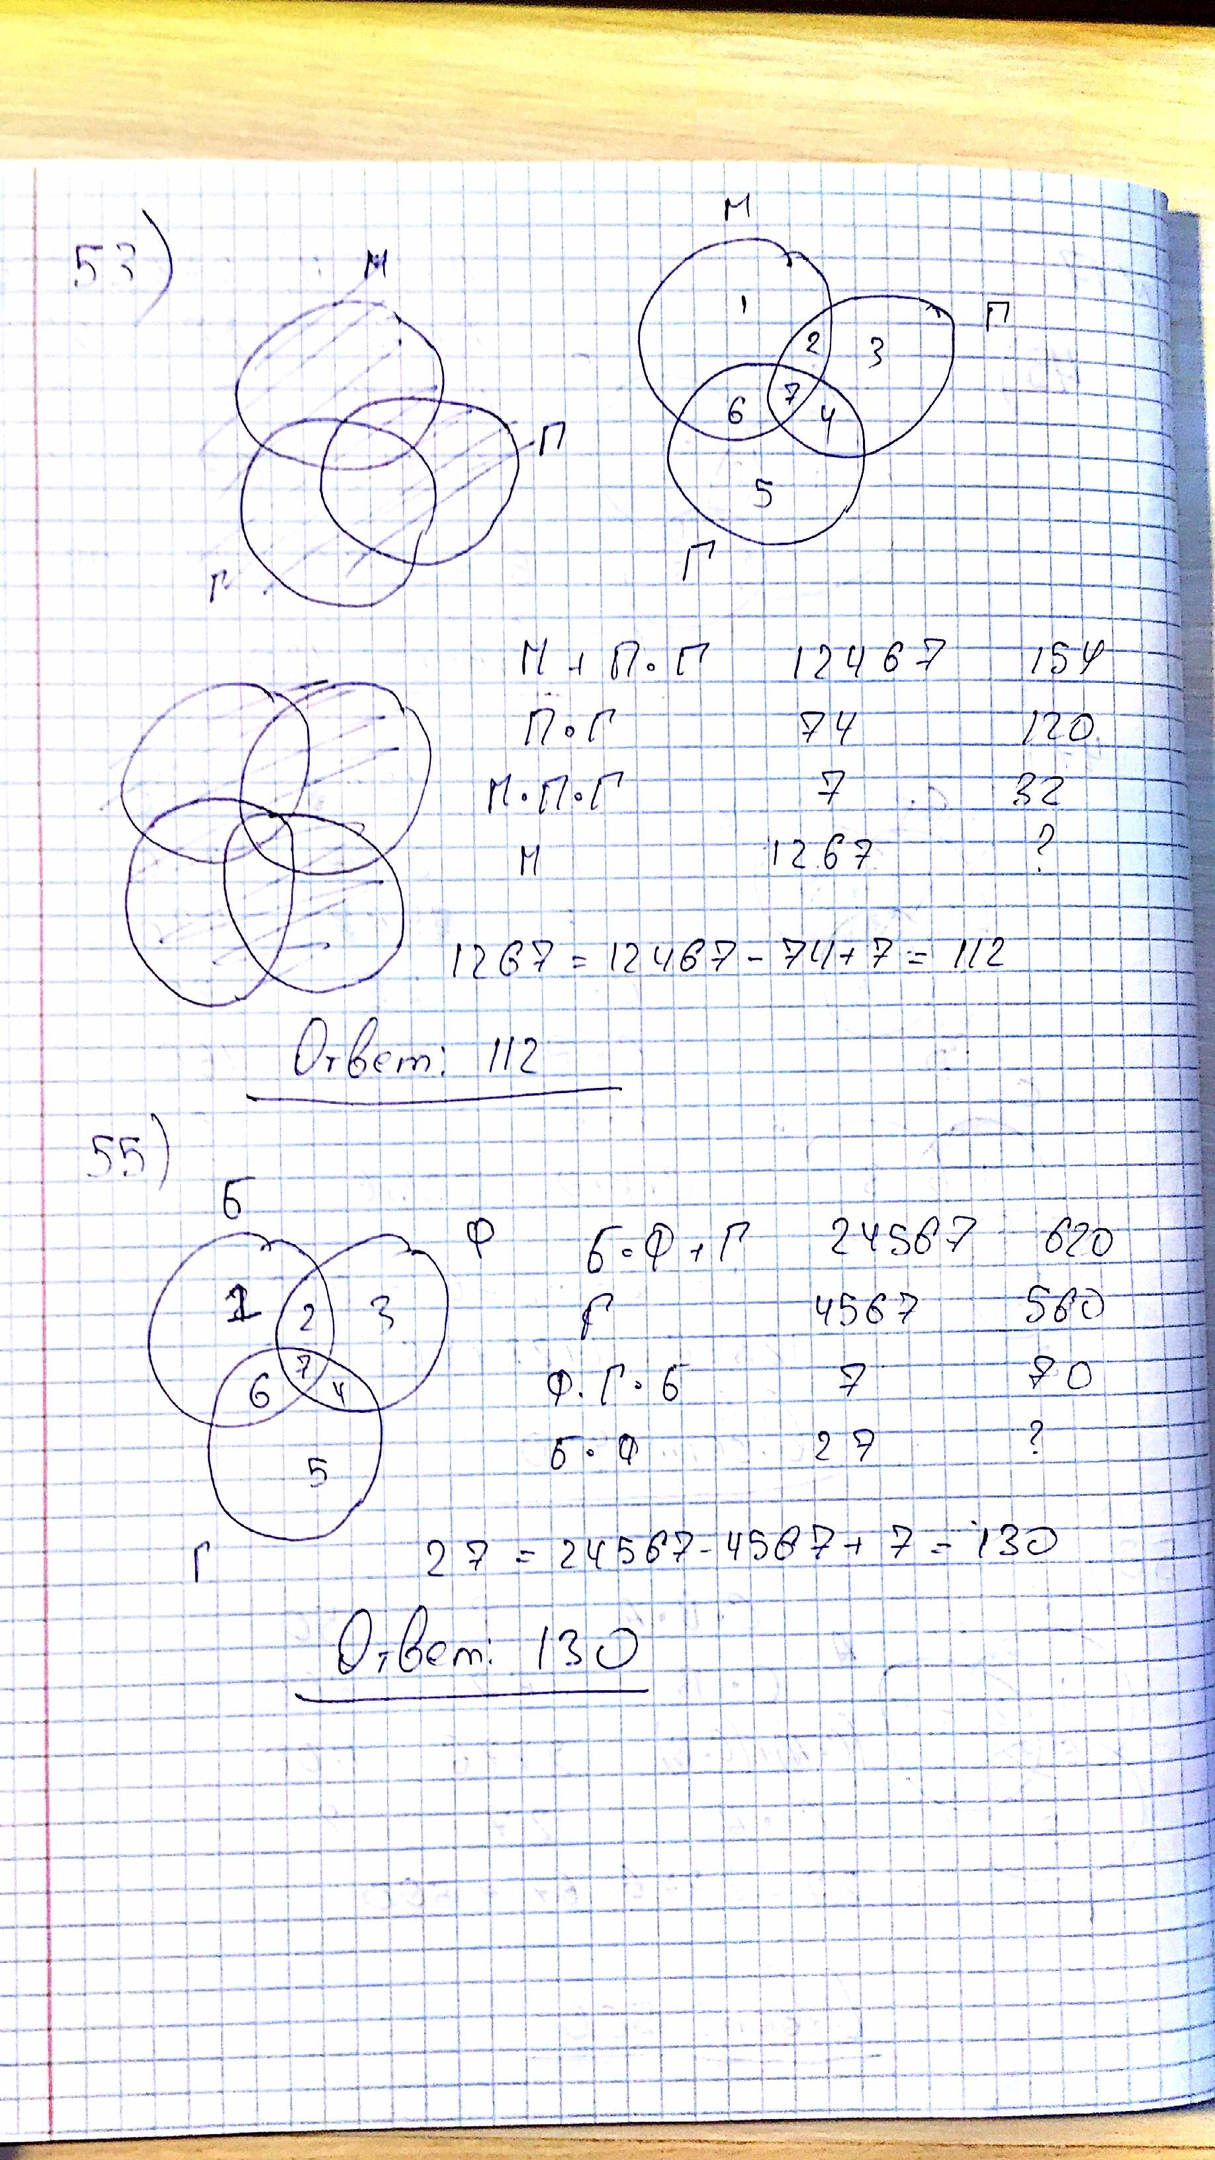 53)
М
П
Г
М
П
Г
1
2
3
6
7
4
5
М + П·Г 12467 154
П·Г 74 120
М·П·Г 7 32
М 1267 ?
1267 = 12467 - 74 + 7 = 112
Ответ: 112
55)
Б
Ф
Г
1
2
3
7
6
4
5
Б·Ф + Г 24567 620
Г 4567 560
Ф·Г·Б 7 70
Б·Ф 27 ?
27 = 24567 - 4567 + 7 = 130
Ответ: 130